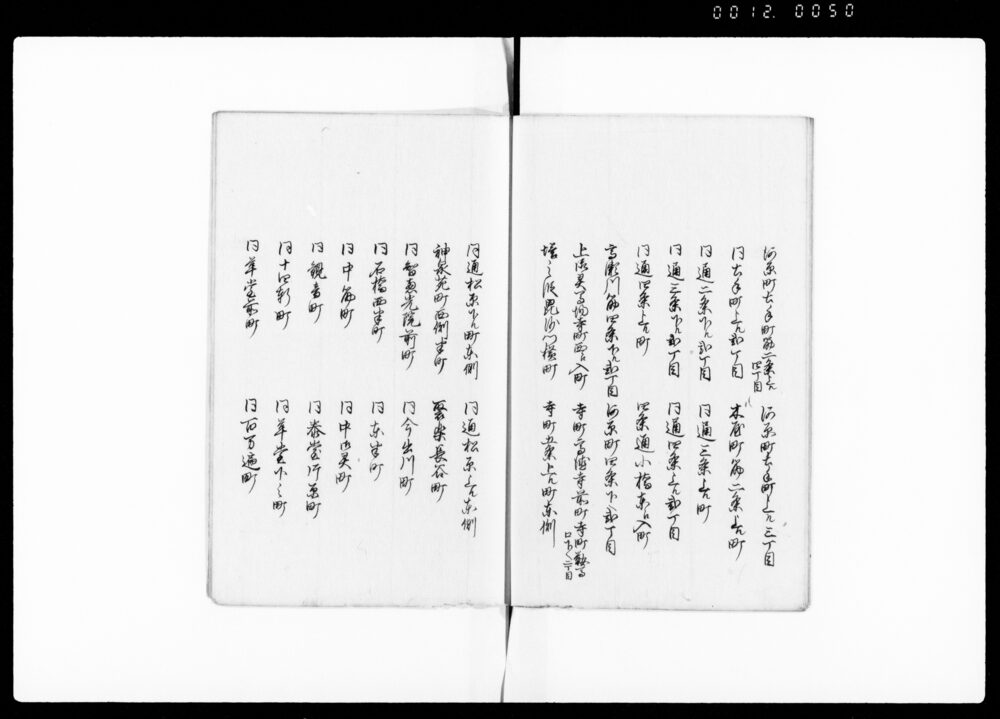 0012. 0050
河原町古手町筋二条上ル四丁目 河原町古手町上ル三丁目
同古手町上ル弐丁目 木屋町筋二条上ル町
同通二条下ル弐丁目 同通三条上ル町
同通三条下ル弐丁目 同通四条上ル弐丁目
同通四条上ル町 四条通小橋東ヘ入町
高瀬川筋四条下ル弐丁目 河原町四条下ル弐丁目
上御霊馬場寺町西ヘ入町 寺町高徳寺前町寺町鞍馬口下ル二丁目
堀之後毘沙門横町 寺町五条上ル町東側
同通松原下ル町東側 同通松原上ル東側
神泉苑町西側半町 聚楽長谷町
同智恵光院前町 同今出川町
同石橋西半町 同東半町
同中筋町 同中御霊町
同観音町 同泰堂行蔵町
同十四軒町 同草堂下之町
同草堂前町 同百万遍町